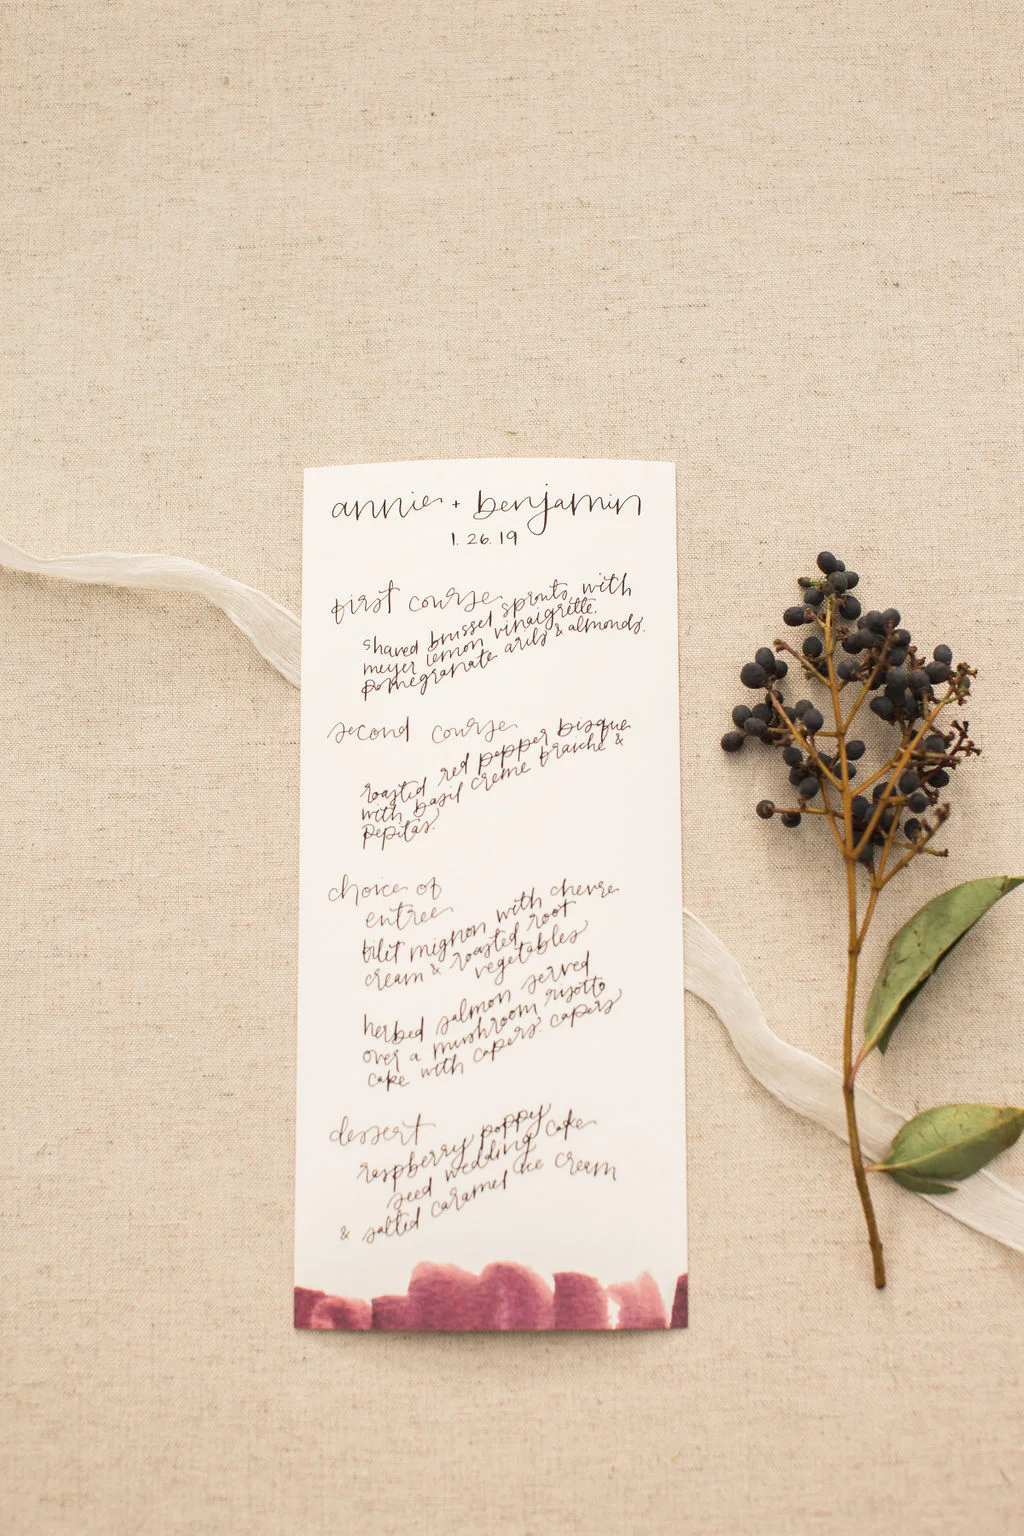 annie + benjamin
1.26.19
first course
shaved brussel sprouts with
meyer lemon vinaigrette,
pomegranate arils & almonds.
second course
roasted red pepper bisque
with basil creme fraiche &
pepitas.
choice of
entree
filet mignon with chevre
cream & roasted root
vegetables
herbed salmon served
over a mushroom risotto
cake with capers capers
dessert
raspberry poppy
seed wedding cake
& salted caramel ice cream